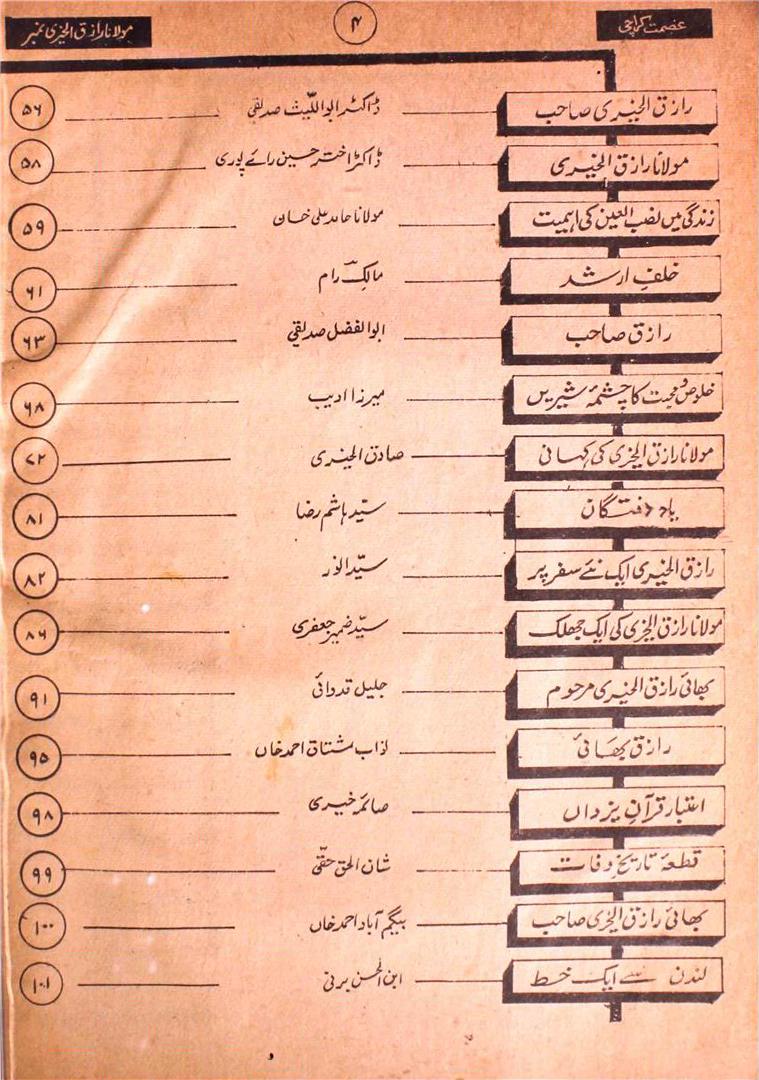 عصمت کراچی ۴ مولانا رازق الخیری نمبر
رازق الخیری صاحب ڈاکٹر ابواللیث صدیقی ۵۶
مولانا رازق الخیری ڈاکٹر اختر حسین رائے پوری ۵۸
زندگی میں نصب العین کی اہمیت مولانا حامد علی خان ۵۹
خلفِ ارشد مالک رام ۶۱
رازق صاحب ابوالفضل صدیقی ۶۳
خلوص و محبت کا چشمۂ شیریں میرزا ادیب ۶۸
مولانا رازق الخیری کی کہانی صادق الخیری ۷۲
یادِ رفتگان سیّد ہاشم رضا ۸۱
رازق الخیری ایک نئے سفر پر سیّد انور ۸۲
مولانا رازق الخیری کی ایک جھلک سیّد ضمیر جعفری ۸۶
بھائی رازق الخیری مرحوم جلیل قدوائی ۹۱
رازق بھائی نواب مشتاق احمد خاں ۹۵
اعتبار قرآنِ یزداں صائمہ خیری ۹۸
قطعۂ تاریخِ وفات شان الحق حقّی ۹۹
بھائی رازق الخیری صاحب بیگم آباد احمد خاں ۱۰۰
لندن سے ایک خط ابن الحسن برنی ۱۰۱